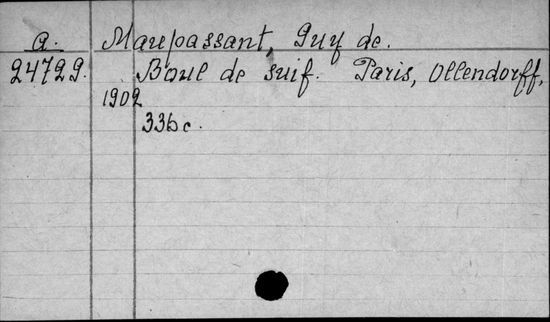 a. Maupassant, Guy de.
24729. Boul de suif. Paris, Ollendorff,
1902
336 c.